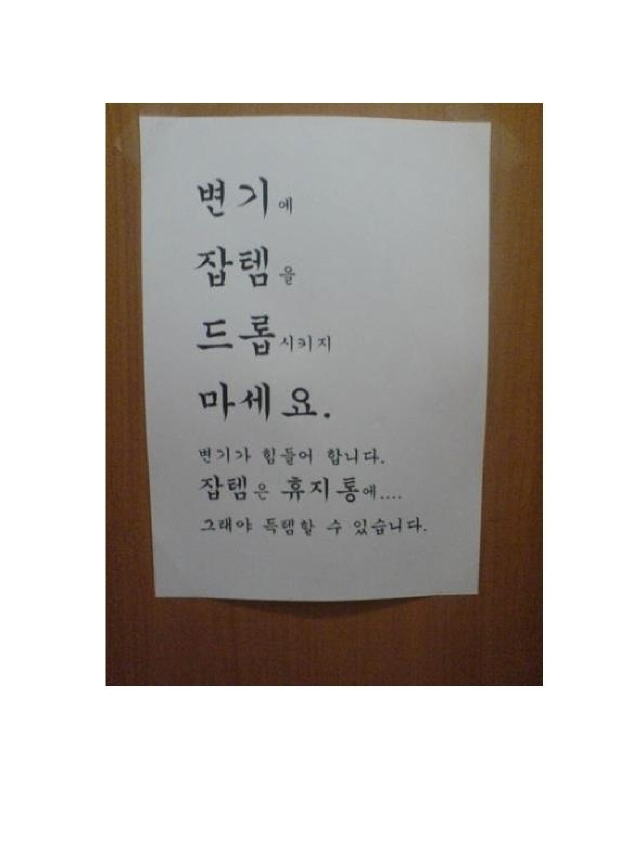 변기에
잡템을
드롭시키지
마세요.
변기가 힘들어 합니다.
잡템은 휴지통에....
그래야 득템할 수 있습니다.